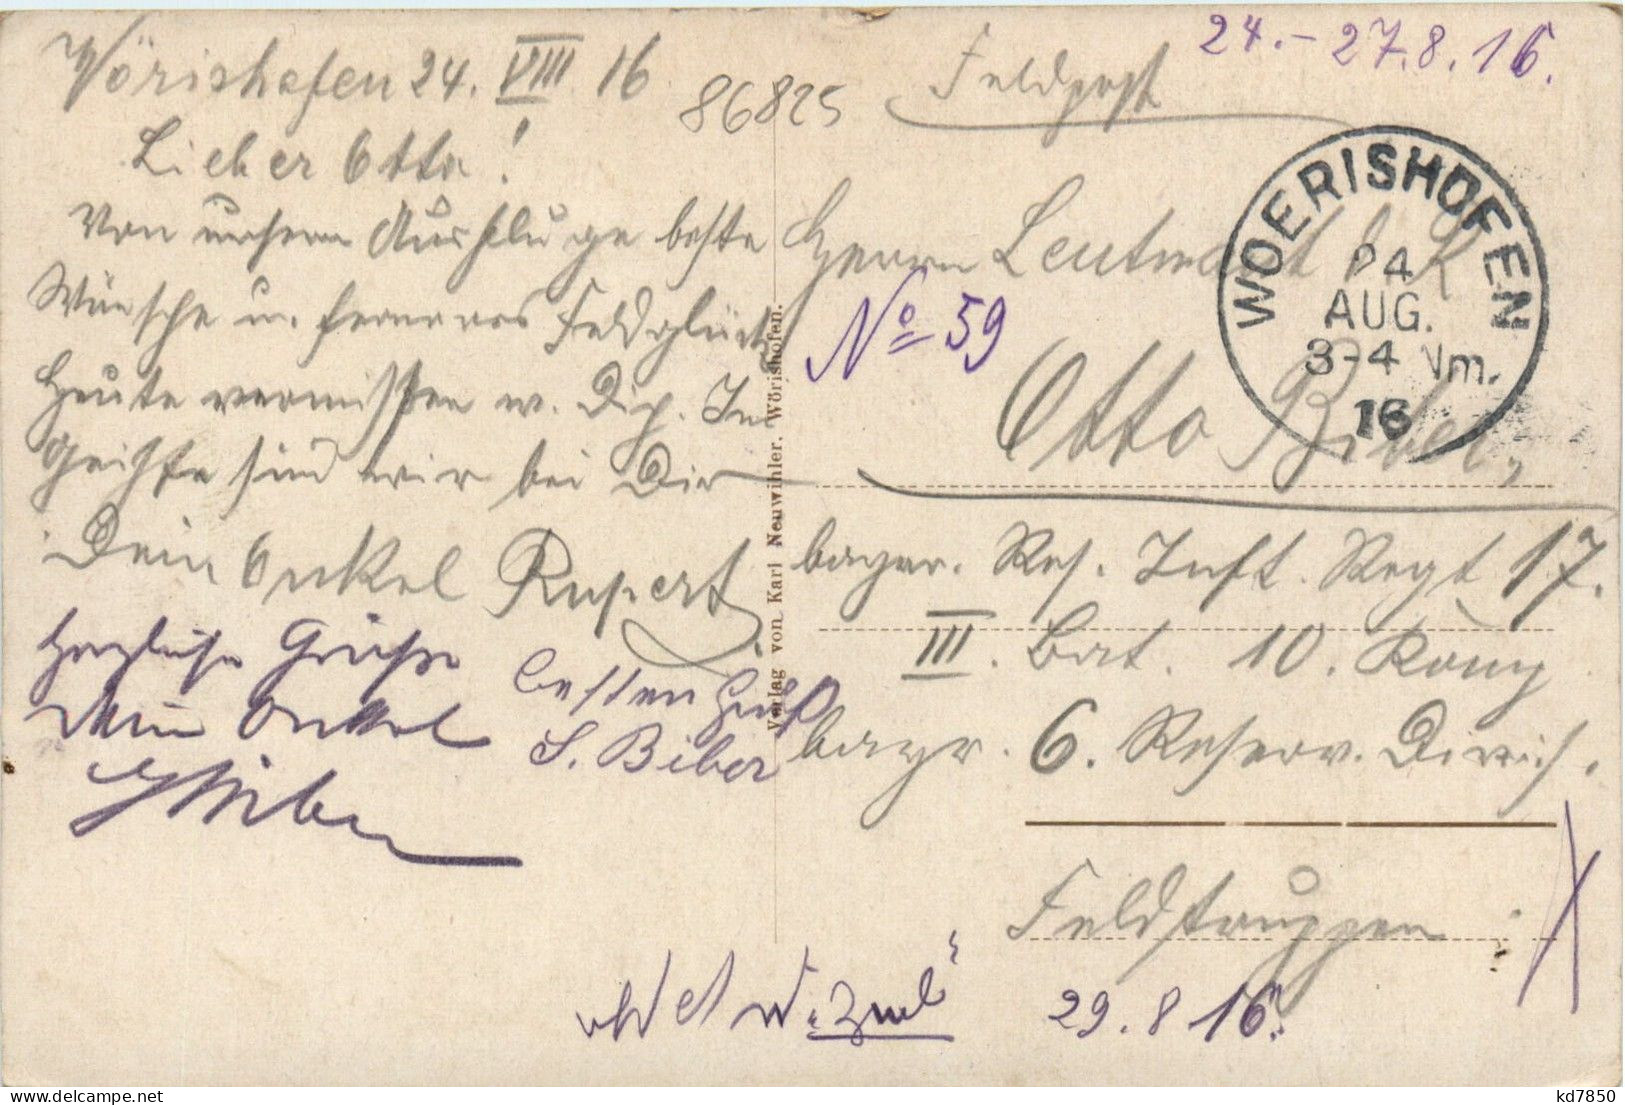 Wörishofen 24. VIII 16
86825
Lieber Otto!
Von unserm Ausfluge beste
Wünsche u. ferneres Feldglück
Heute vermissten w. Dich. Im
Geiste sind wir bei Dir
Dein Onkel Rupert
Herzliche Grüsse
Dein Onkel
besten Gruß
S. Biber
Verlag von Karl Neuwihler, Wörishofen.
24.-27.8.16.
Feldpost
WOERISHOFEN
24
AUG.
3-4 Nm.
16
Herrn Leutnant d. R.
No 59
Otto Biber,
bayer. Res. Inft. Regt 17.
III. Bat. 10. Komp
bayr. 6. Reserv. Divis.
Feldtruppen
29.8 16.
kd7850